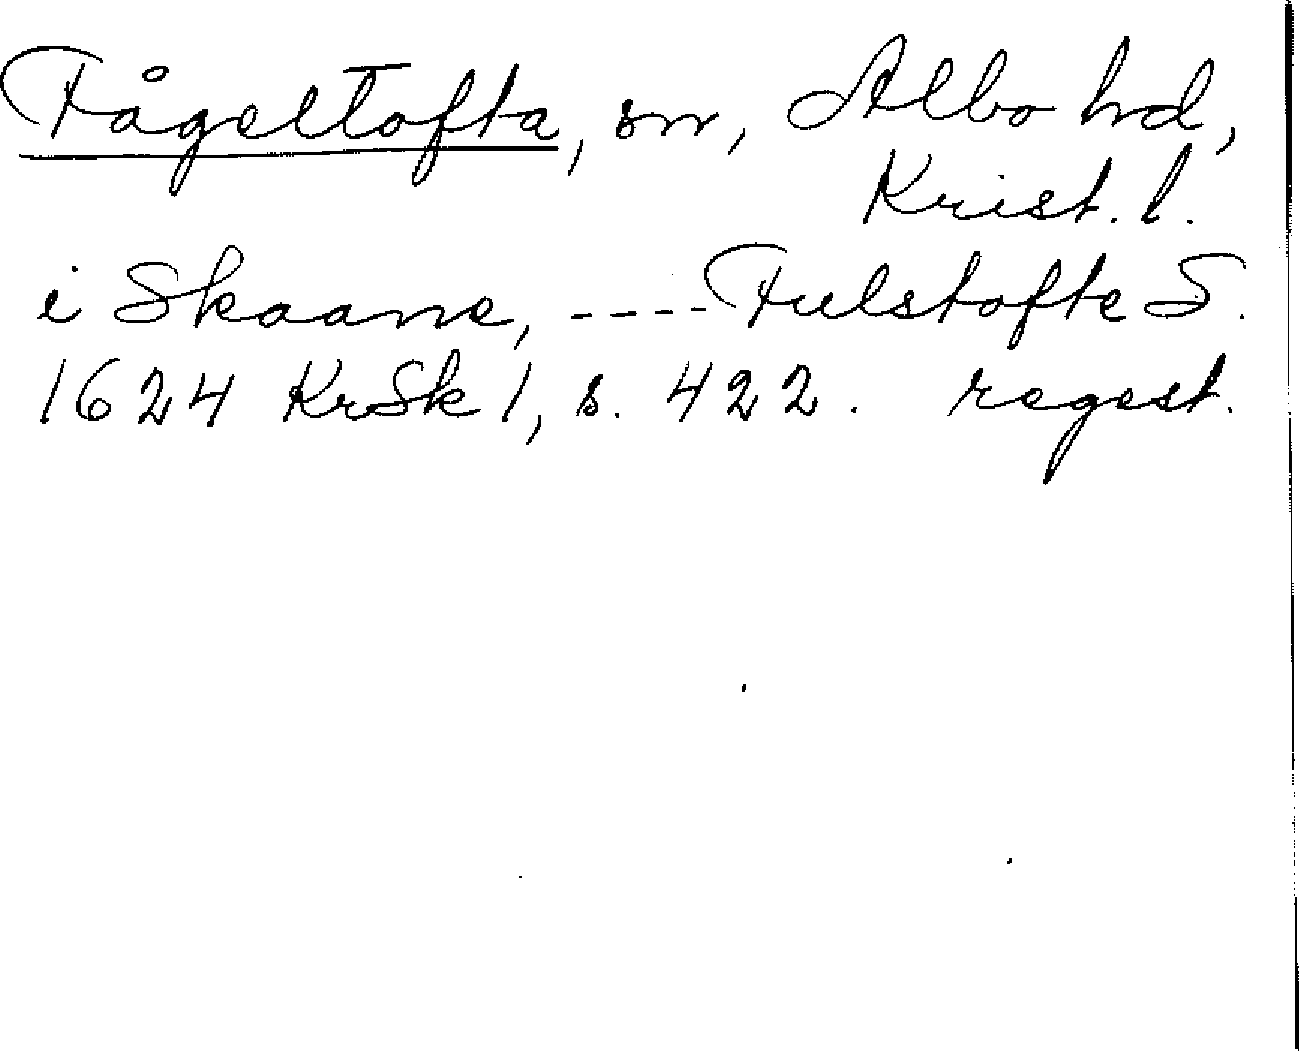 Fågeltofta, sn, Albo hd,
Krist. l.
i Skaane, ---- Fulstofte S.
1624 KrSk 1, s. 422. regest.